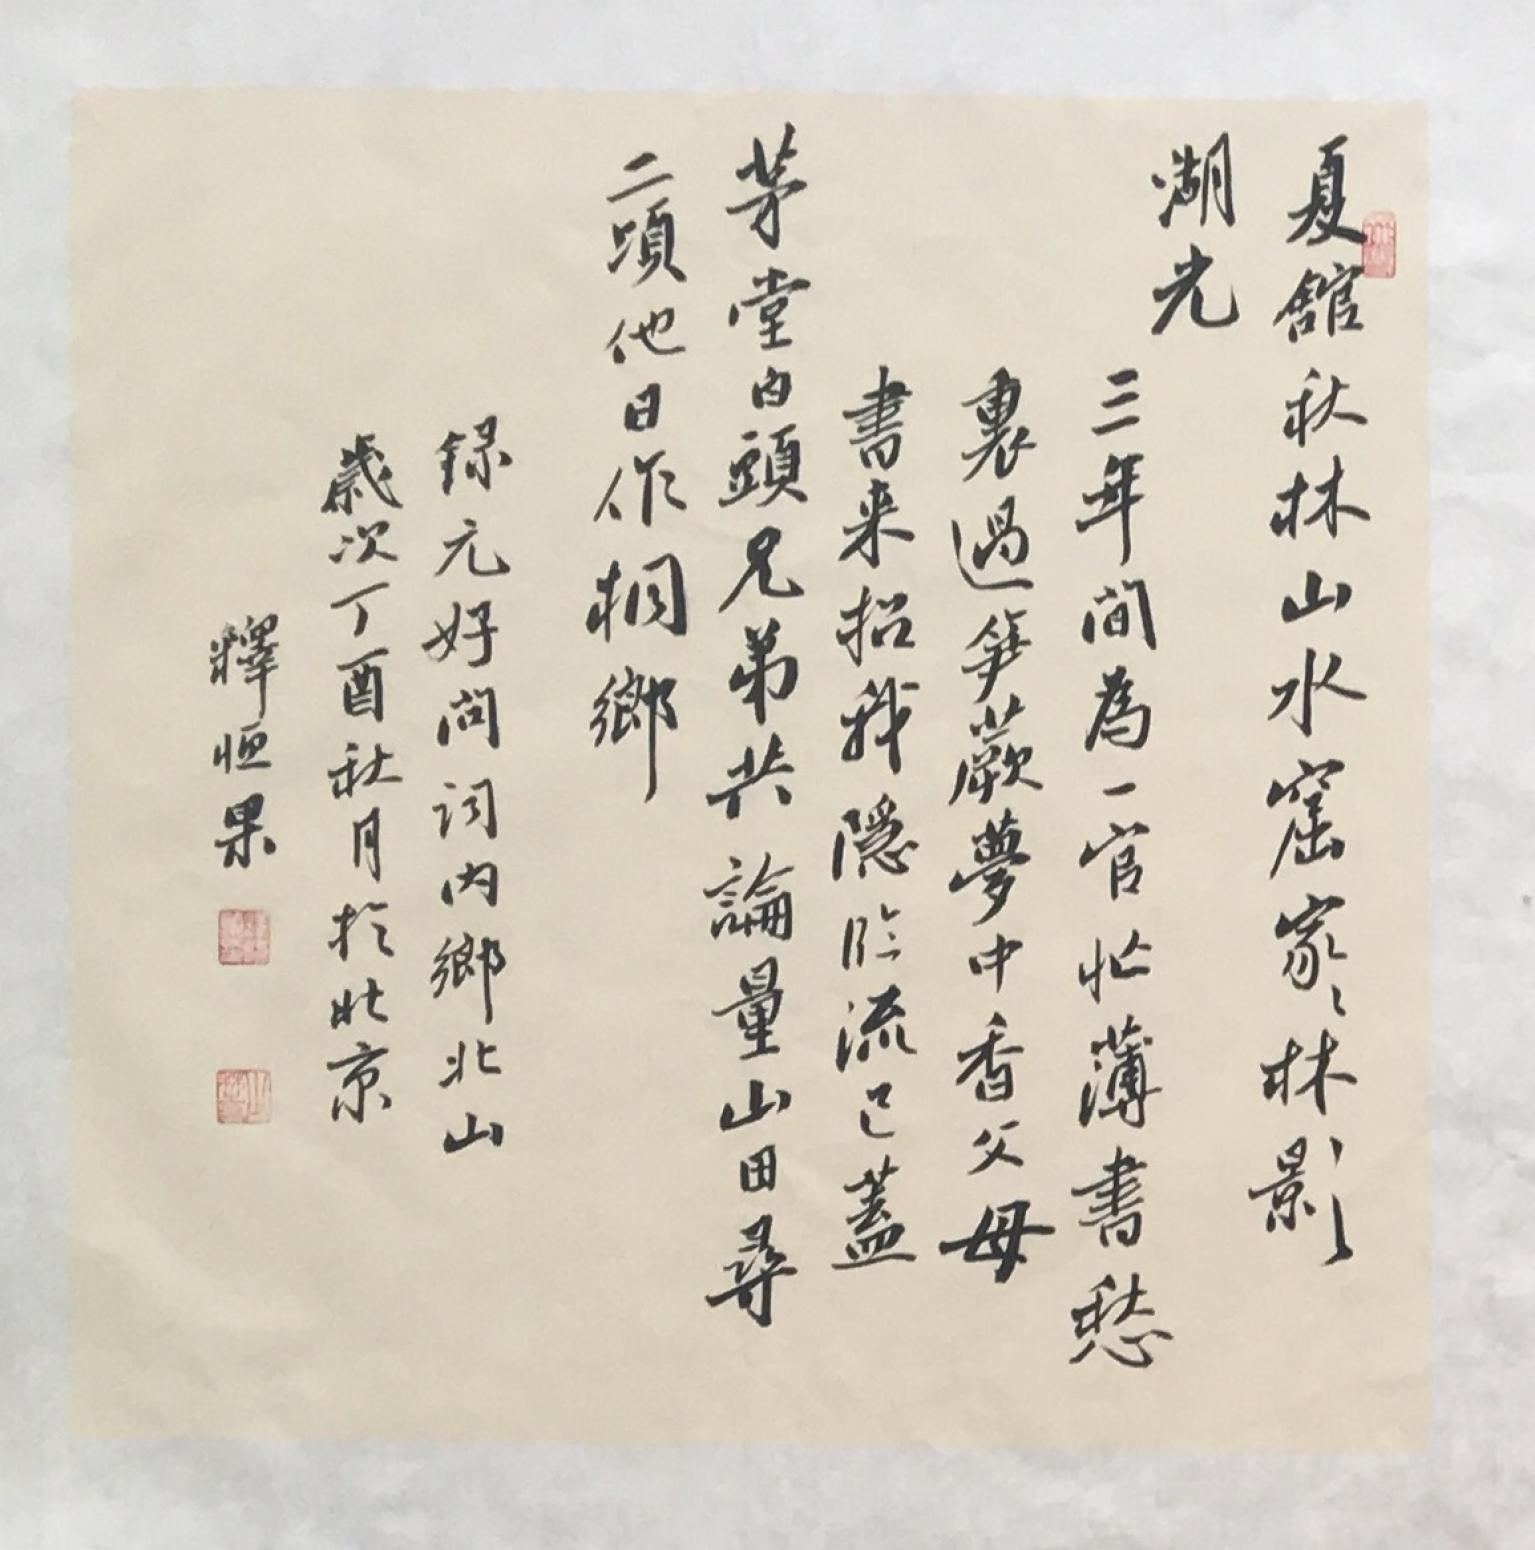 夏館秋林山水窟家々林影
湖光
三年間為一官忙薄書愁
裏過笋蕨夢中香父母
書来招我隠临流已蓋
茅堂白頭兄弟共論量山田尋
二頃他日作桐鄉
録元好问词内鄉北山
歲次丁酉秋月於北京
釋恒果